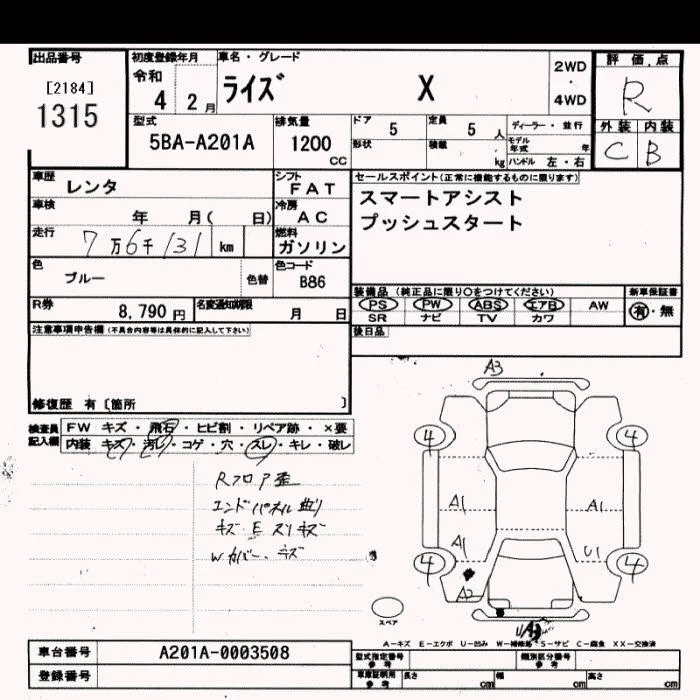 出品番号
[2184]
1315
初度登録年月
令和
4 2月
車名・グレード
ライズ X
2WD
・
4WD
評価点
R
外装 内装
C B
型式
5BA-A201A
排気量
1200
CC
ドア 5
定員 5 人
形状
積載
kg
ディーラー・並行
モデル年式 年
ハンドル 左・右
車歴
レンタ
シフト
FAT
車検
年 月( 日)
冷房
AC
走行
7万6千131 km
燃料
ガソリン
色
ブルー
色替
色コード
B86
R券
8,790円
名変通知期限
月 日
セールスポイント(正常に機能するものに限ります)
スマートアシスト
プッシュスタート
装備品 (純正品に限り○をつけてください)
PS PW ABS エアB AW
SR ナビ TV カワ
新車保証書
有・無
後日品
注意事項申告欄 (不具合内容等は具体的に記入して下さい)
修復歴 有 [箇所 ]
検査員
記入欄
FW キズ・飛石・ヒビ割・リペア跡・×要
内装 キズ・汚レ・コゲ・穴・スレ・キレ・破レ
Rフロア歪
エンドパネル曲り
キズ E スリキズ
Wカバー、キズ
A3
4 4
A1 A1
A1 U1
4 4
A2
スペア
A-キズ E-エクボ U-凹み W-補修跡 S-サビ C-腐食 XX-交換済
車台番号
A201A-0003508
登録番号
型式指定番号
参考
類別区分番号
参考
車庫証明用
参考
長さ cm
幅 cm
高さ cm